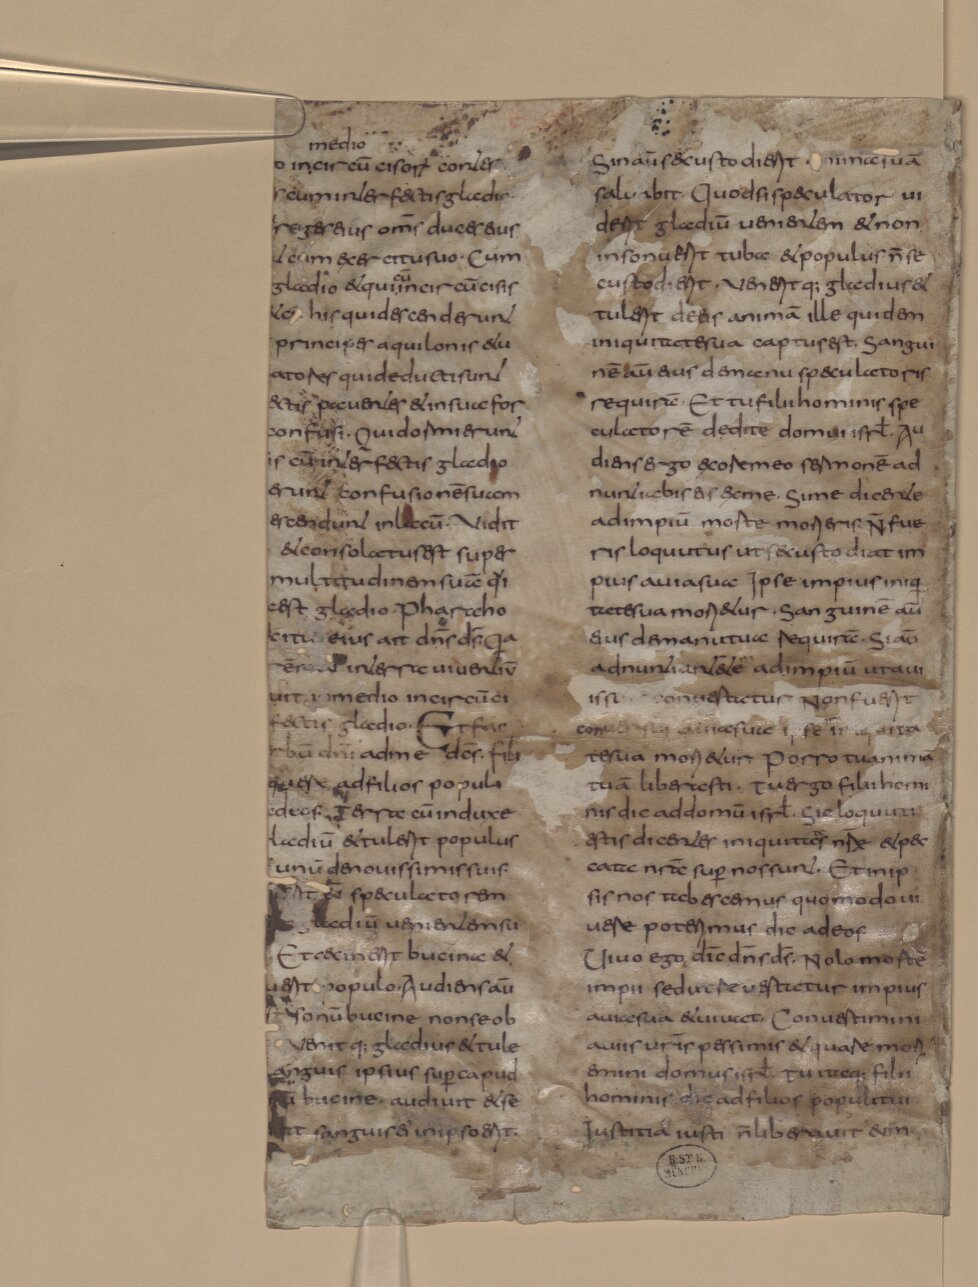 medio
o incircũ eisor conter
cum interfectis gladio
reges eius oms duces eius
cum exercitu suo. Cum
gladio & qui in circũ eius
his qui descenderunt
principes aquilonis & u
atores qui deducti sunt
pauentes & in sua for
confusi. Qui dormierunt
is cũ interfectis gladio
erunt confusionẽ suam
escendunt in lacũ. Vidit
& consolatus est super
multitudinem suã q̃ i
est gladio. Pharaho
eius ait dñs ds̃. Q̃a
in terra uiuentiũ
uit in medio in circũci
fectis gladio. Et fac
bũ dñi ad me dẽs. fili
ad filios populi
ad eos. Terra cũ induxe
ladiũ & tulerit populus
unũ de nouissimis suis.
speculatorem
gladiũ uenientem su
Et cecinerit bucina &
uerit populo. Audiens aũ
sonũ bucine non se ob
Venitq; gladius & tule
anguis ipsius sup caput
ũ bucine audiuit & se
sanguis ei in ipso erit.
Sin aũ se custodierit animã suã
saluabit. Quod si speculator ui
derit gladiũ uenientem & non
insonuerit tuba & populus ñ se
custodierit. Veneritq; gladius &
tulerit de eis animã ille quidem
iniquitate sua captus est. Sangui
nẽ aũ eius de manu speculatoris
requirã. Et tu fili hominis spe
culatorẽ dedi te domui isrl̃. Au
diens ergo ex ore meo sermonẽ ad
nuntiabis eis ex me. Si me dicente
ad impiũ morte morieris ñ fue
ris loquutus ut se custodiat im
pius a uia sua Ipse impius iniq
tate sua mori&ur. Sanguinẽ aũ
eius de manu tua requirã. Si aũ
adnuntiante te ad impiũ ut a ui
is suis conuertatur Non fuerit
conuersus a uia sua ipse in iniquita
te sua mori&ur. Porro tu animã
tuã liberasti. Tu ergo fili homi
nis dic ad domũ isrl̃. Sic loquuti
estis dicentes iniquitates nr̃ae & pec
cata nr̃a sup nos sunt. Et in ip
sis nos tabescimus quomodo ui
uere poterimus dic ad eos
Uiuo ego dic̃ dñs ds̃. Nolo mortẽ
impii sed ut reuertatur impius
a uia sua & uiuat. Conuertimini
a uiis ur̃is pessimis & quare mori
emini domus isrl̃. Tu itaq; fili
hominis dic ad filios populi tui
Iustitia iusti ñ liberauit eum
B.ST.B.
MÜNCHEN